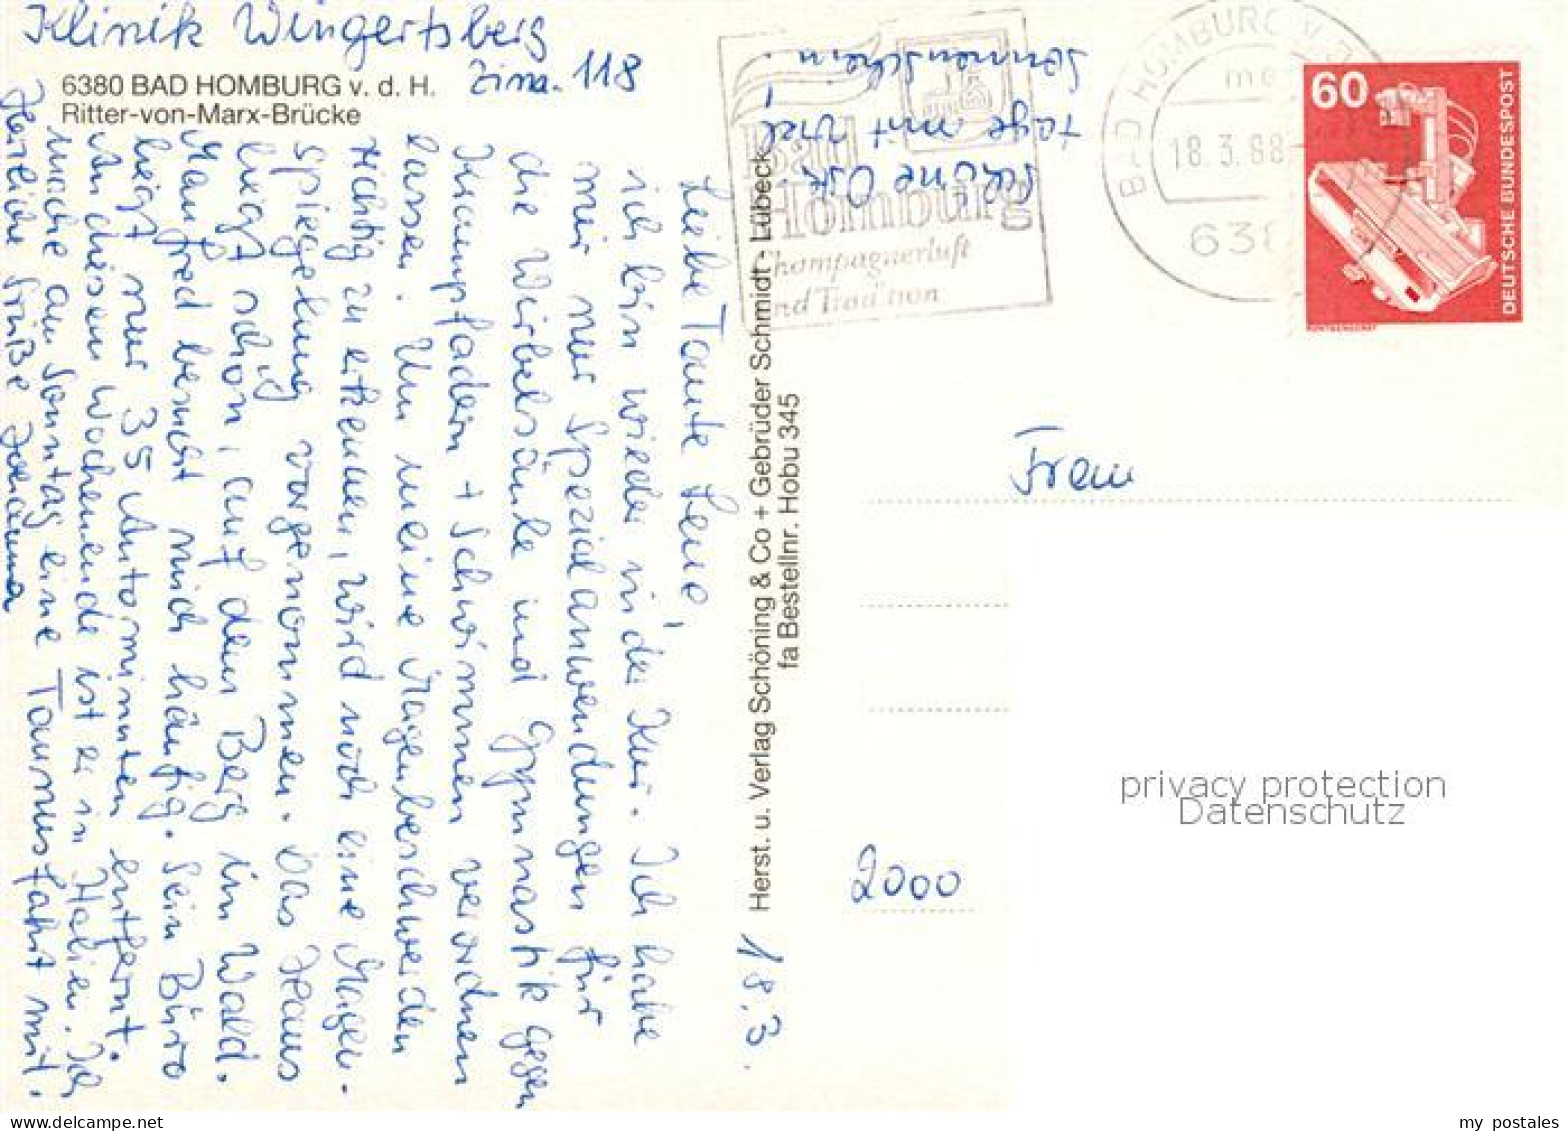 Klinik Wingertsberg
Zim. 118
6380 BAD HOMBURG v. d. H.
Ritter-von-Marx-Brücke
18.3.
Liebe Tante Lene,
ich bin wieder in der Kur. Ich habe
mir nur Spezialanwendungen für
die Wirbelsäule und Gymnastik gegen
Krampfadern + Schwimmen verordnen
lassen. Um meine Magenbeschwerden
richtig zu erkennen, wird noch eine Magen-
spiegelung vorgenommen. Das Haus
liegt schön, auf dem Berg im Wald.
Manfred besucht mich häufig. Sein Büro
liegt nur 35 Autominuten entfernt.
An diesem Wochenende ist er in Italien. Ich
mache am Sonntag eine Taunusfahrt mit.
Herzliche Grüße Johanna
schöne Oster-
tage mit viel
Sonnenschein!
Herst. u. Verlag Schöning & Co + Gebrüder Schmidt - Lübeck
fa Bestellnr. Hobu 345
Bad
Homburg
Champagnerluft
und Tradition
BAD HOMBURG V.D.
18.3.88
638
60
DEUTSCHE BUNDESPOST
Frau
2000
privacy protection
Datenschutz
my postales